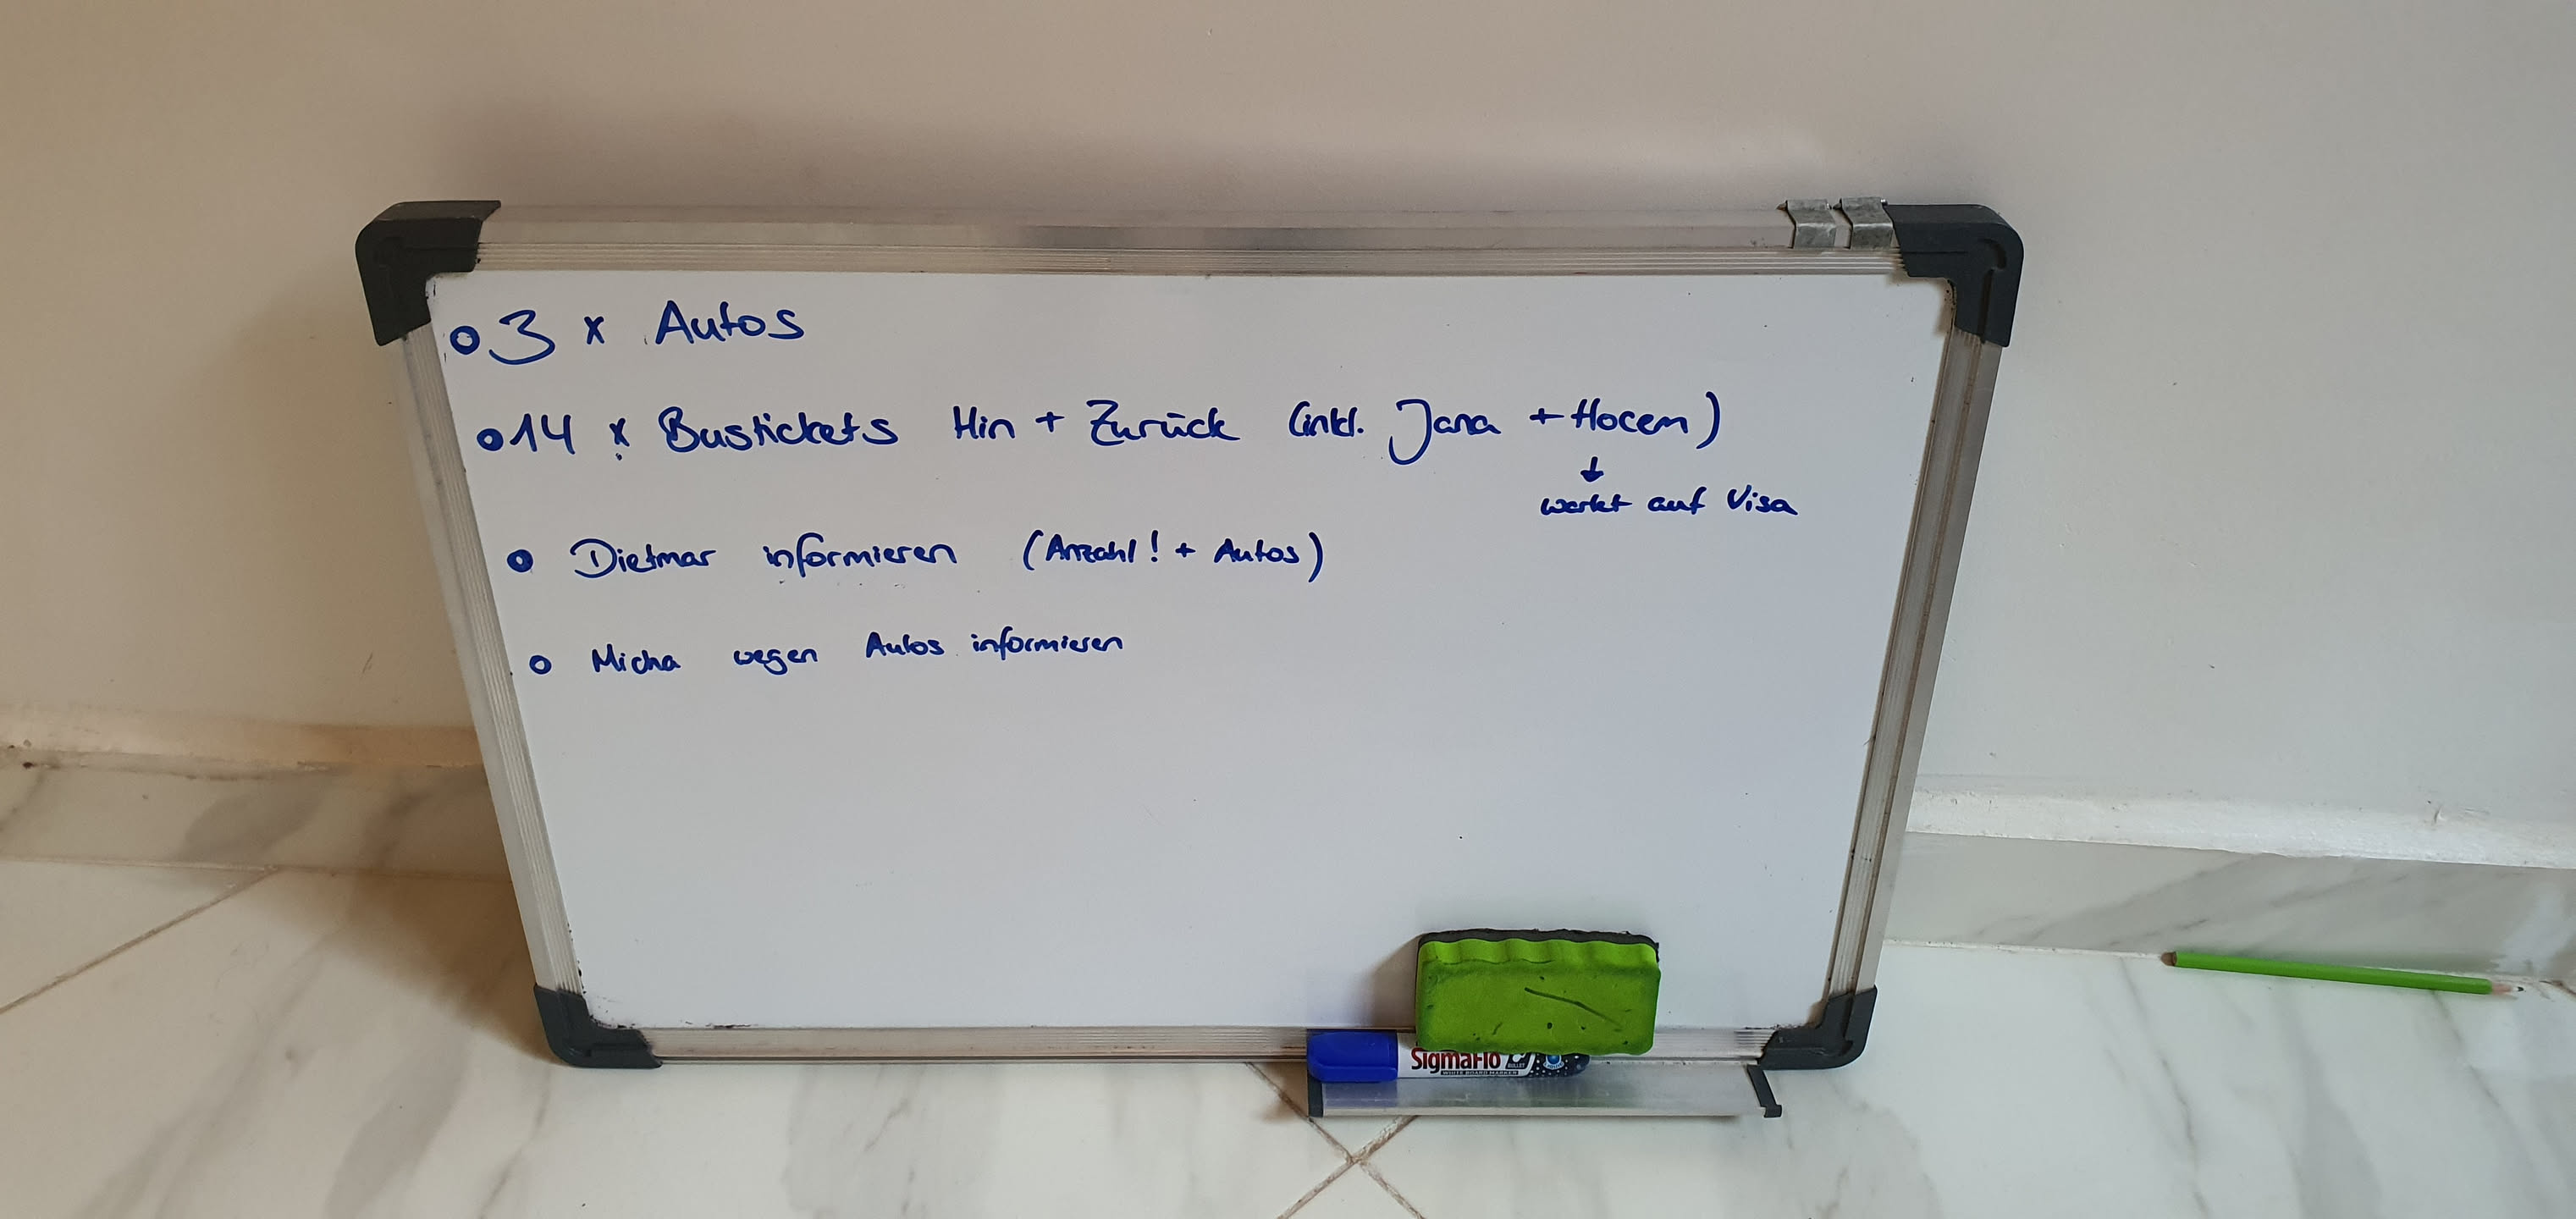 3 x Autos
14 x Bustickets Hin + Zurück (inkl. Jana + Hocem)
↓
wartet auf Visa
Dietmar informieren (Anzahl! + Autos)
Micha wegen Autos informieren
SigmaFlo
BULLET
WHITE BOARD MARKER